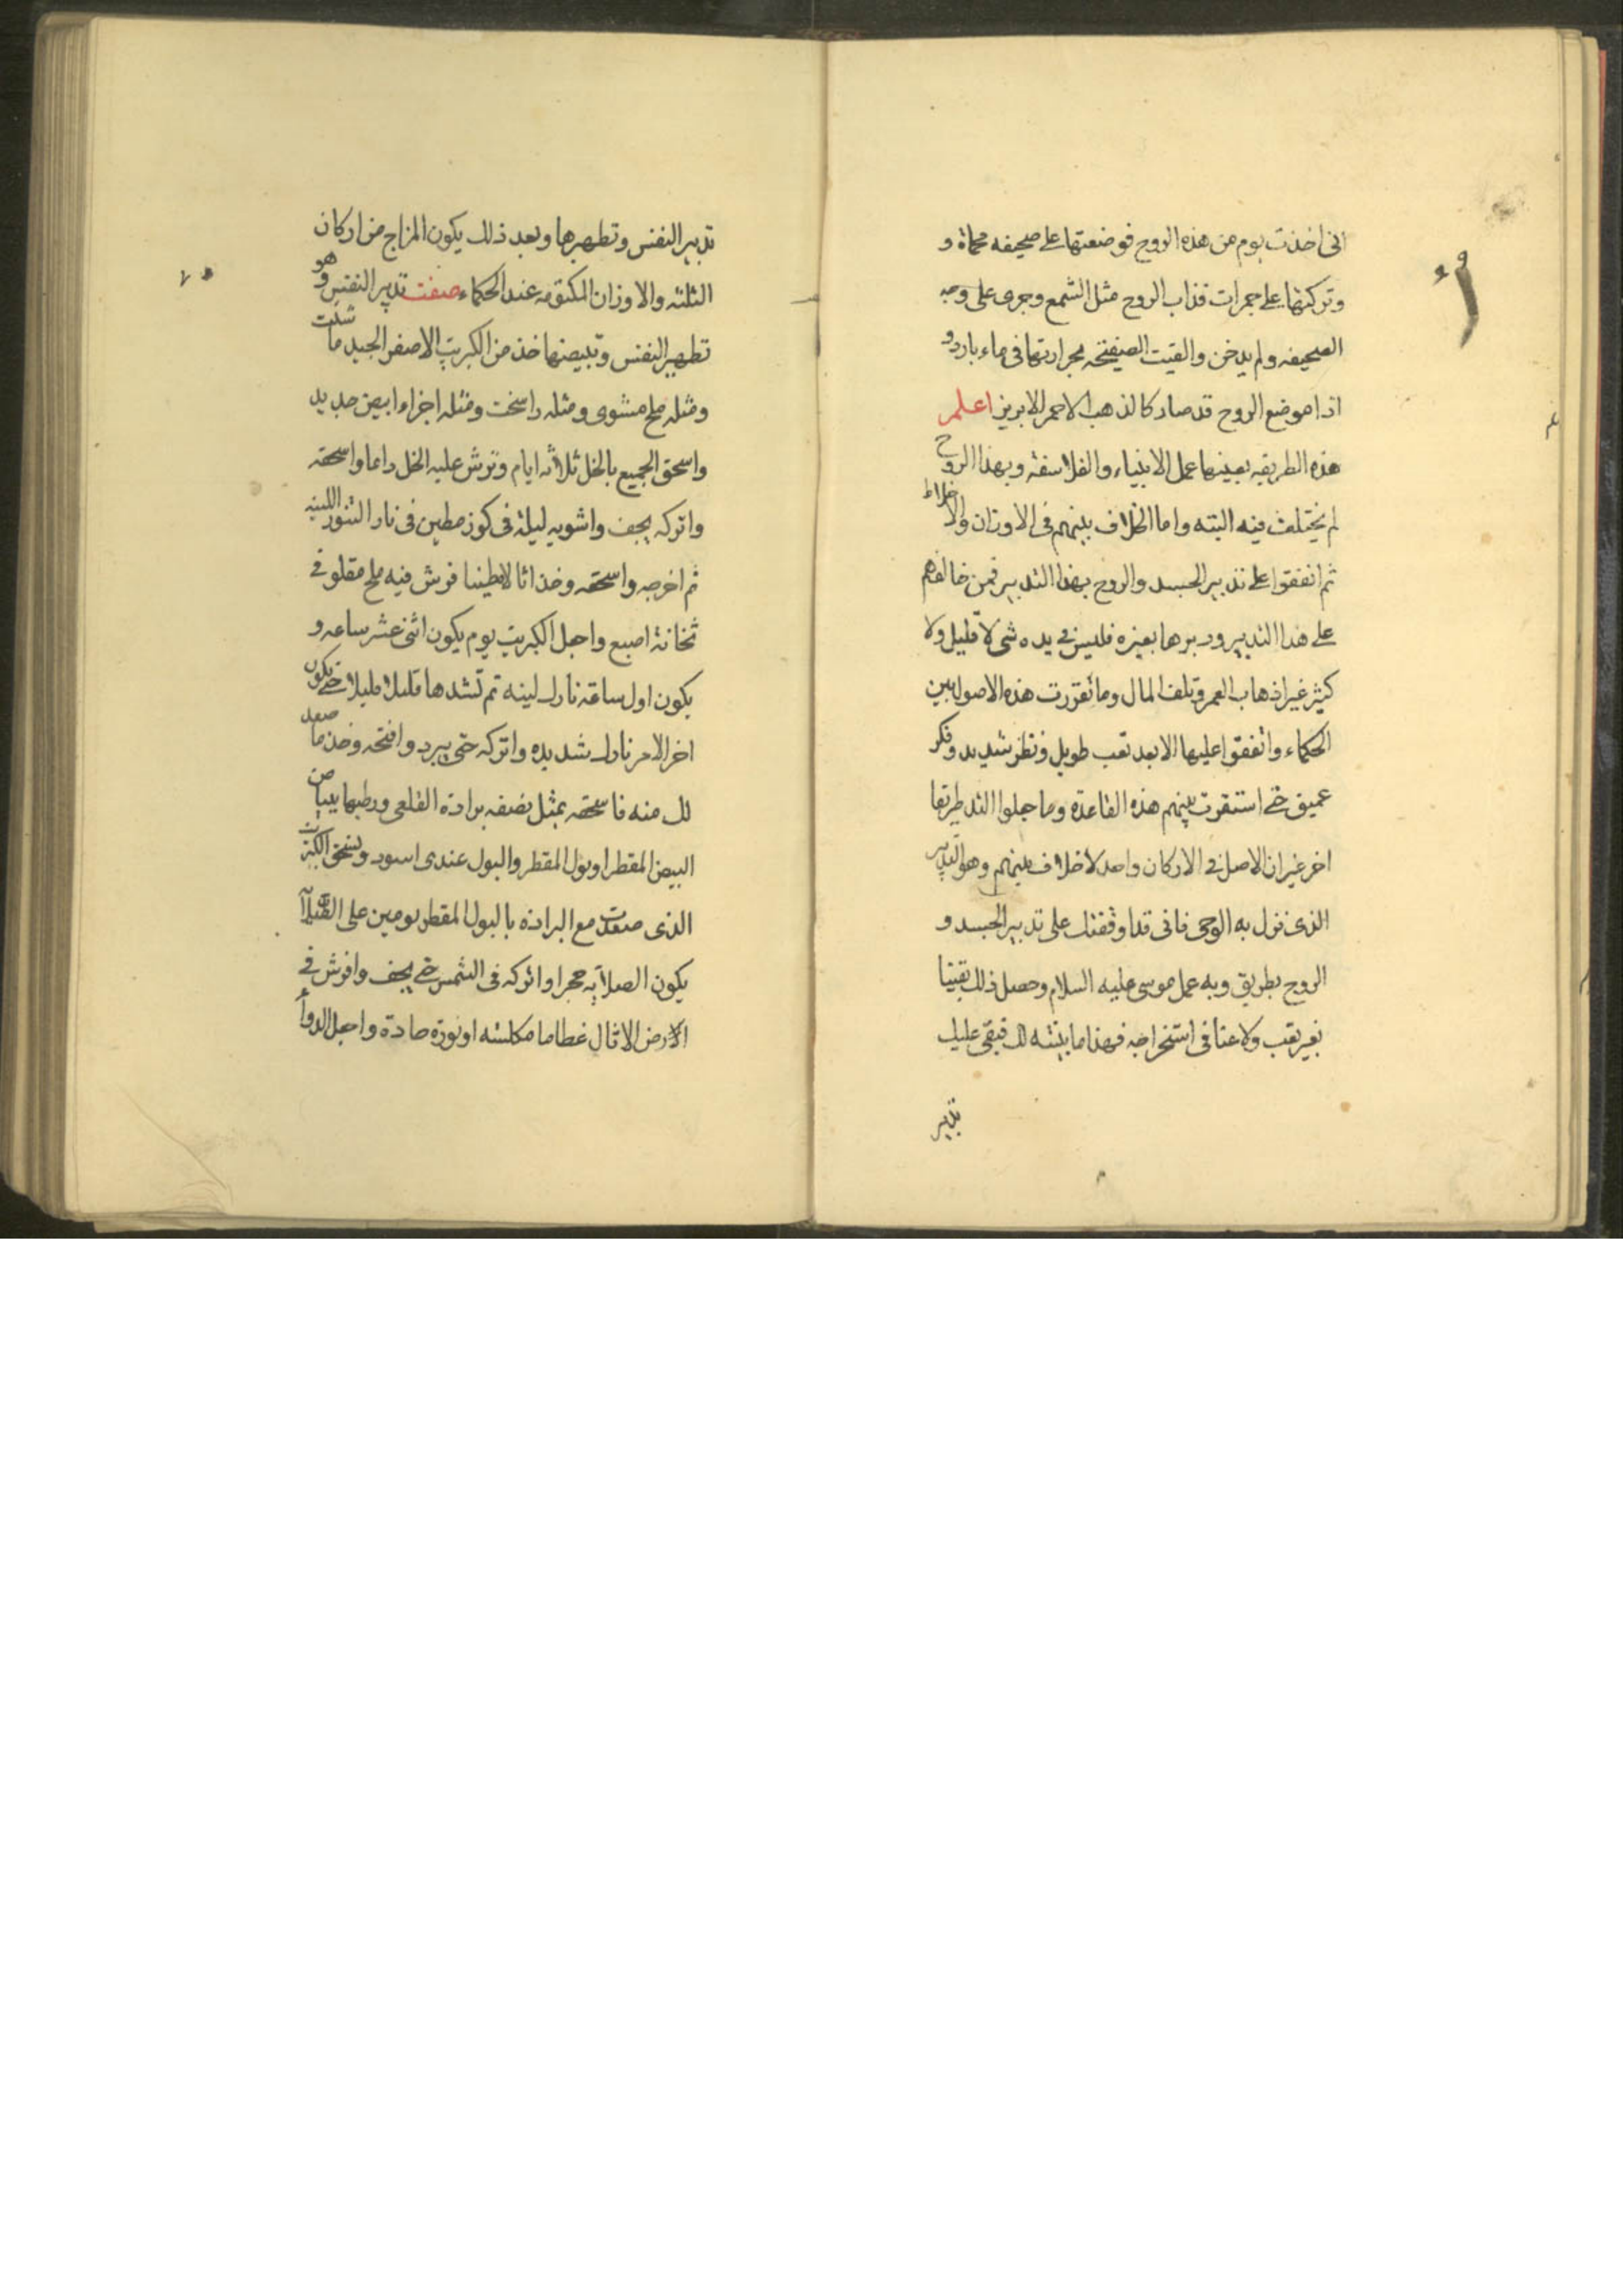 انى اخذت يوم من هذه الروح فوضعتها على صحيفه محماة و
وتركتها على جمرات فذاب الروح مثل الشمع وجرى على وجه
الصحيفه ولم يدخن والقيت الصفيحه بحرارتها فى ماء بارد و
اذا موضع الروح قد صار كالذهب الاحمر الابريز اعلم
هذه الطريقه بعينها عمل الانبياء والفلاسفة وبهذا الروح
لم يختلف فيه البته واما الخلاف بينهم فى الاوزان والاخلاط
ثم اتفقوا على تدبير الجسد والروح بهذا التدبير فمن خالفهم
على هذا التدبير ودبرها بغيره فليس فى يده شى لا قليل ولا
كثير غير اذهاب العمر وتلف المال وما تقررت هذه الاصول بين
الحكماء واتفقوا عليها الا بعد تعب طويل ونظر شديد وفكر
عميق حتى استقرت بينهم هذه القاعدة وما جعلوا طريقا
اخر غير ان الاصل فى الاركان واحد لا خلاف بينهم وهو التدبير
الذى نزل به الوحى فانى قد اوقفتك على تدبير الجسد و
الروح بطريق وبه عمل موسى عليه السلام وحصل ذلك يقينا
بغير تعب ولا عنا فى استخراجه فهذا ما بينته لك فبقى عليك
تدبير
تدبير النفس وتطهيرها وبعد ذلك يكون المزاج من اركان
الثلثه والاوزان المكتومه عند الحكماء صفت تدبير النفس وهو
تطهير النفس وتبيضها خذ من الكبريت الاصفر الجيد ما شئت
ومثله ملح مشوى ومثله راسخت ومثله اجزاء ابيض جديد
واسحق الجميع بالخل ثلاثه ايام وترش عليه الخل داعا واسحقه
واتركه يجف واشويه ليلة فى كوز مطين فى نار التنور اللينه
ثم اخرجه واسحقه وخذ اثالا مطينا فرش فيه ملح مقلو فى
ثخانة اصبع واجعل الكبريت يوم يكون اثنى عشر ساعه و
يكون اول ساعة نارك لينه ثم تشدها قليلا قليلا حتى تكون
اخر الامر نارك شديده واتركه حتى يبرد وافتحه وخذ ما صعد
لك منه فاسحقه بمثل نصفه برادة القلعى ورطبها ببياض
البيض المقطر او بول المقطر والبول عندى اسود وتسحق الكبريت
الذى صعدت مع البرادة بالبول المقطر يومين على
يكون الصلايه حجرا واتركه فى الشمس حتى يجف وافرش فى
الارض الاثال عظاما مكلسه او نورة حادة واجعل الدواء